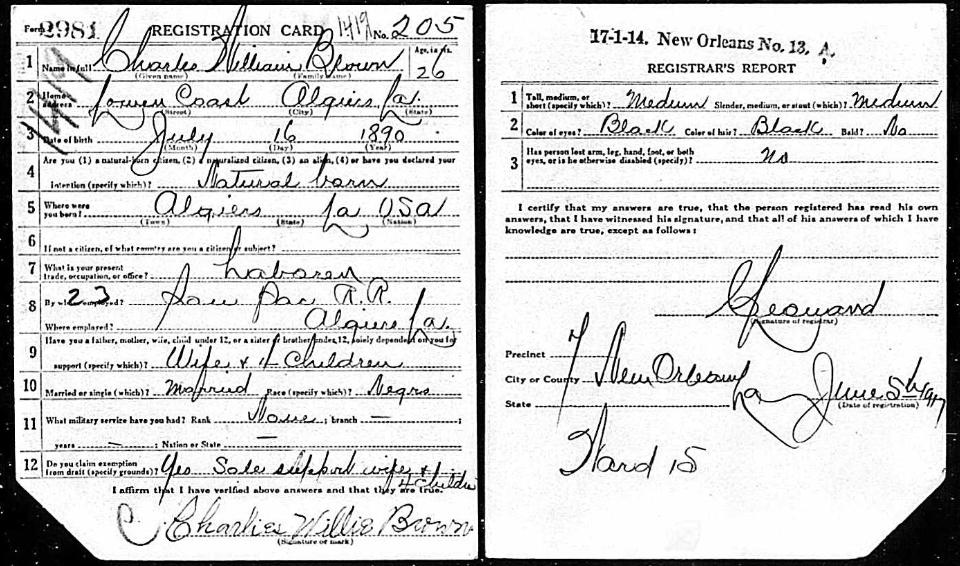 Form 2981 REGISTRATION CARD 1419 No. 205
1 Name in full Charles William Brown Age, in yrs. 26
(Given name) (Family name)
2 Home address Lower Coast Algiers La.
(Street) (City) (State)
3 Date of birth July 16 1890
(Month) (Day) (Year)
4 Are you (1) a natural-born citizen, (2) a naturalized citizen, (3) an alien, (4) or have you declared your
intention (specify which)? Natural born
5 Where were you born? Algiers La USA
(Town) (State) (Nation)
6 If not a citizen, of what country are you a citizen or subject?
7 What is your present trade, occupation, or office? Laborer
8 By whom employed? 23 Sou Pac R.R.
Where employed? Algiers La.
9 Have you a father, mother, wife, child under 12, or a sister or brother under 12, solely dependent on you for
support (specify which)? Wife & 4 Children
10 Married or single (which)? Married Race (specify which)? Negro
11 What military service have you had? Rank None ; branch — ;
years — ; Nation or State —
12 Do you claim exemption from draft (specify grounds)? Yes Sole support wife & 4 Childre
I affirm that I have verified above answers and that they are true.
Charlies Willie Brown
(Signature or mark)
1419
17-1-14. New Orleans No. 13, A.
REGISTRAR'S REPORT
1 Tall, medium, or short (specify which)? Medium Slender, medium, or stout (which)? medium
2 Color of eyes? Black Color of hair? Black Bald? No
3 Has person lost arm, leg, hand, foot, or both eyes, or is he otherwise disabled (specify)? No
I certify that my answers are true, that the person registered has read his own
answers, that I have witnessed his signature, and that all of his answers of which I have
knowledge are true, except as follows:
(Signature of registrar)
Precinct 7
City or County New Orleans
State La June 5th 1917
(Date of registration)
Ward 15